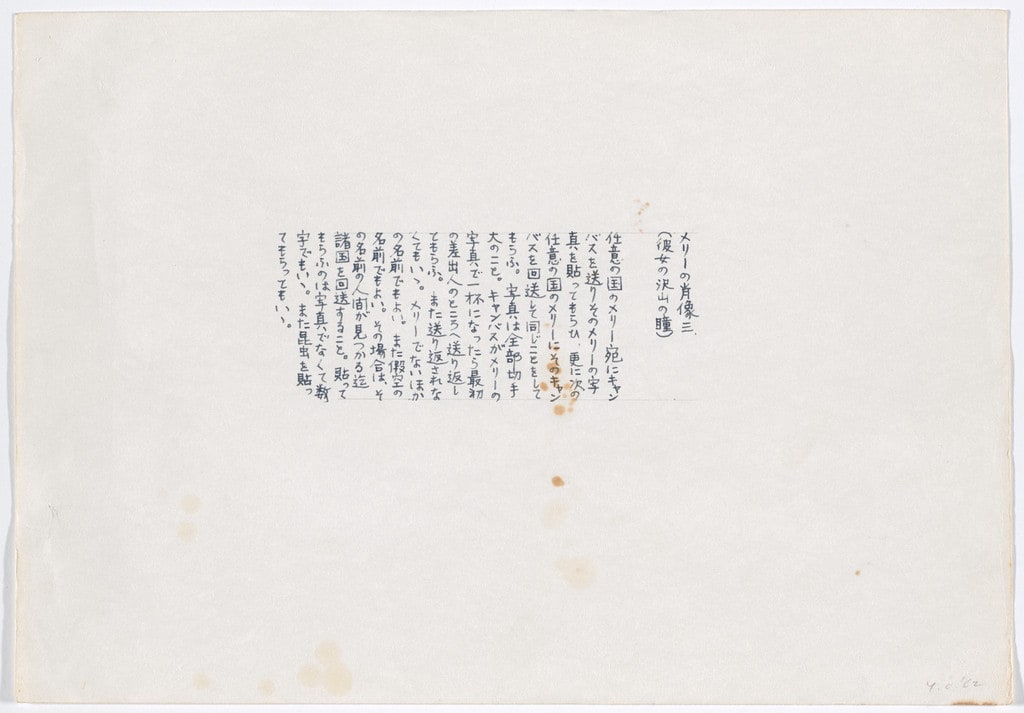 メリーの肖像 三.
(彼女の沢山の瞳)
任意の国のメリー宛にキャン
バスを送りそのメリーの字
真を貼ってもらひ、更に次の
任意の国のメリーにそのキャン
バスを回送して同じことをして
もらふ。写真は全部切手
大のこと。キャンバスがメリーの
写真で一杯になったら最初
の差出人のところへ送り返し
てもらふ。また送り返されな
くてもいゝ。メリーでないほか
の名前でもよい。また假空の
名前でもよい。その場合は、そ
の名前の人間が見つかる迄
諸国を回送すること。貼って
もらふのは写真でなくて数
字でもいゝ。また昆虫を貼っ
てもらってもいゝ。
Y.O.'62